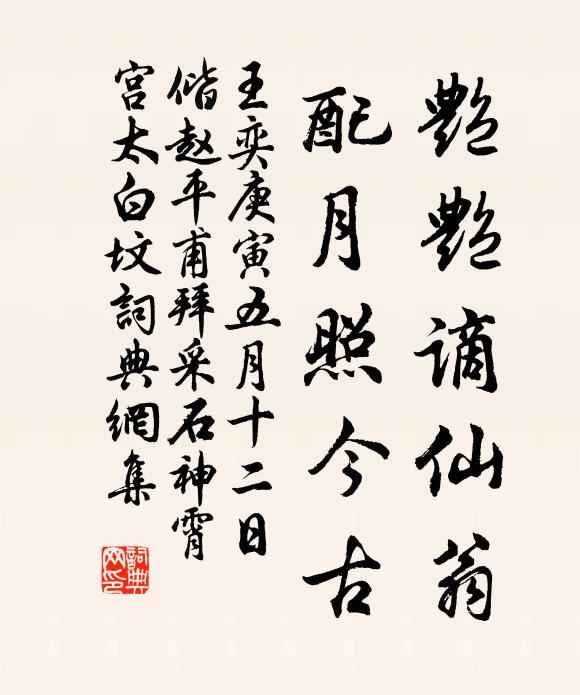 艷艷謫仙翁
配月照今古
王奕庚寅五月十二日
偕赵平甫拜采石神霄
宫太白坟詞典網集
詞典网印